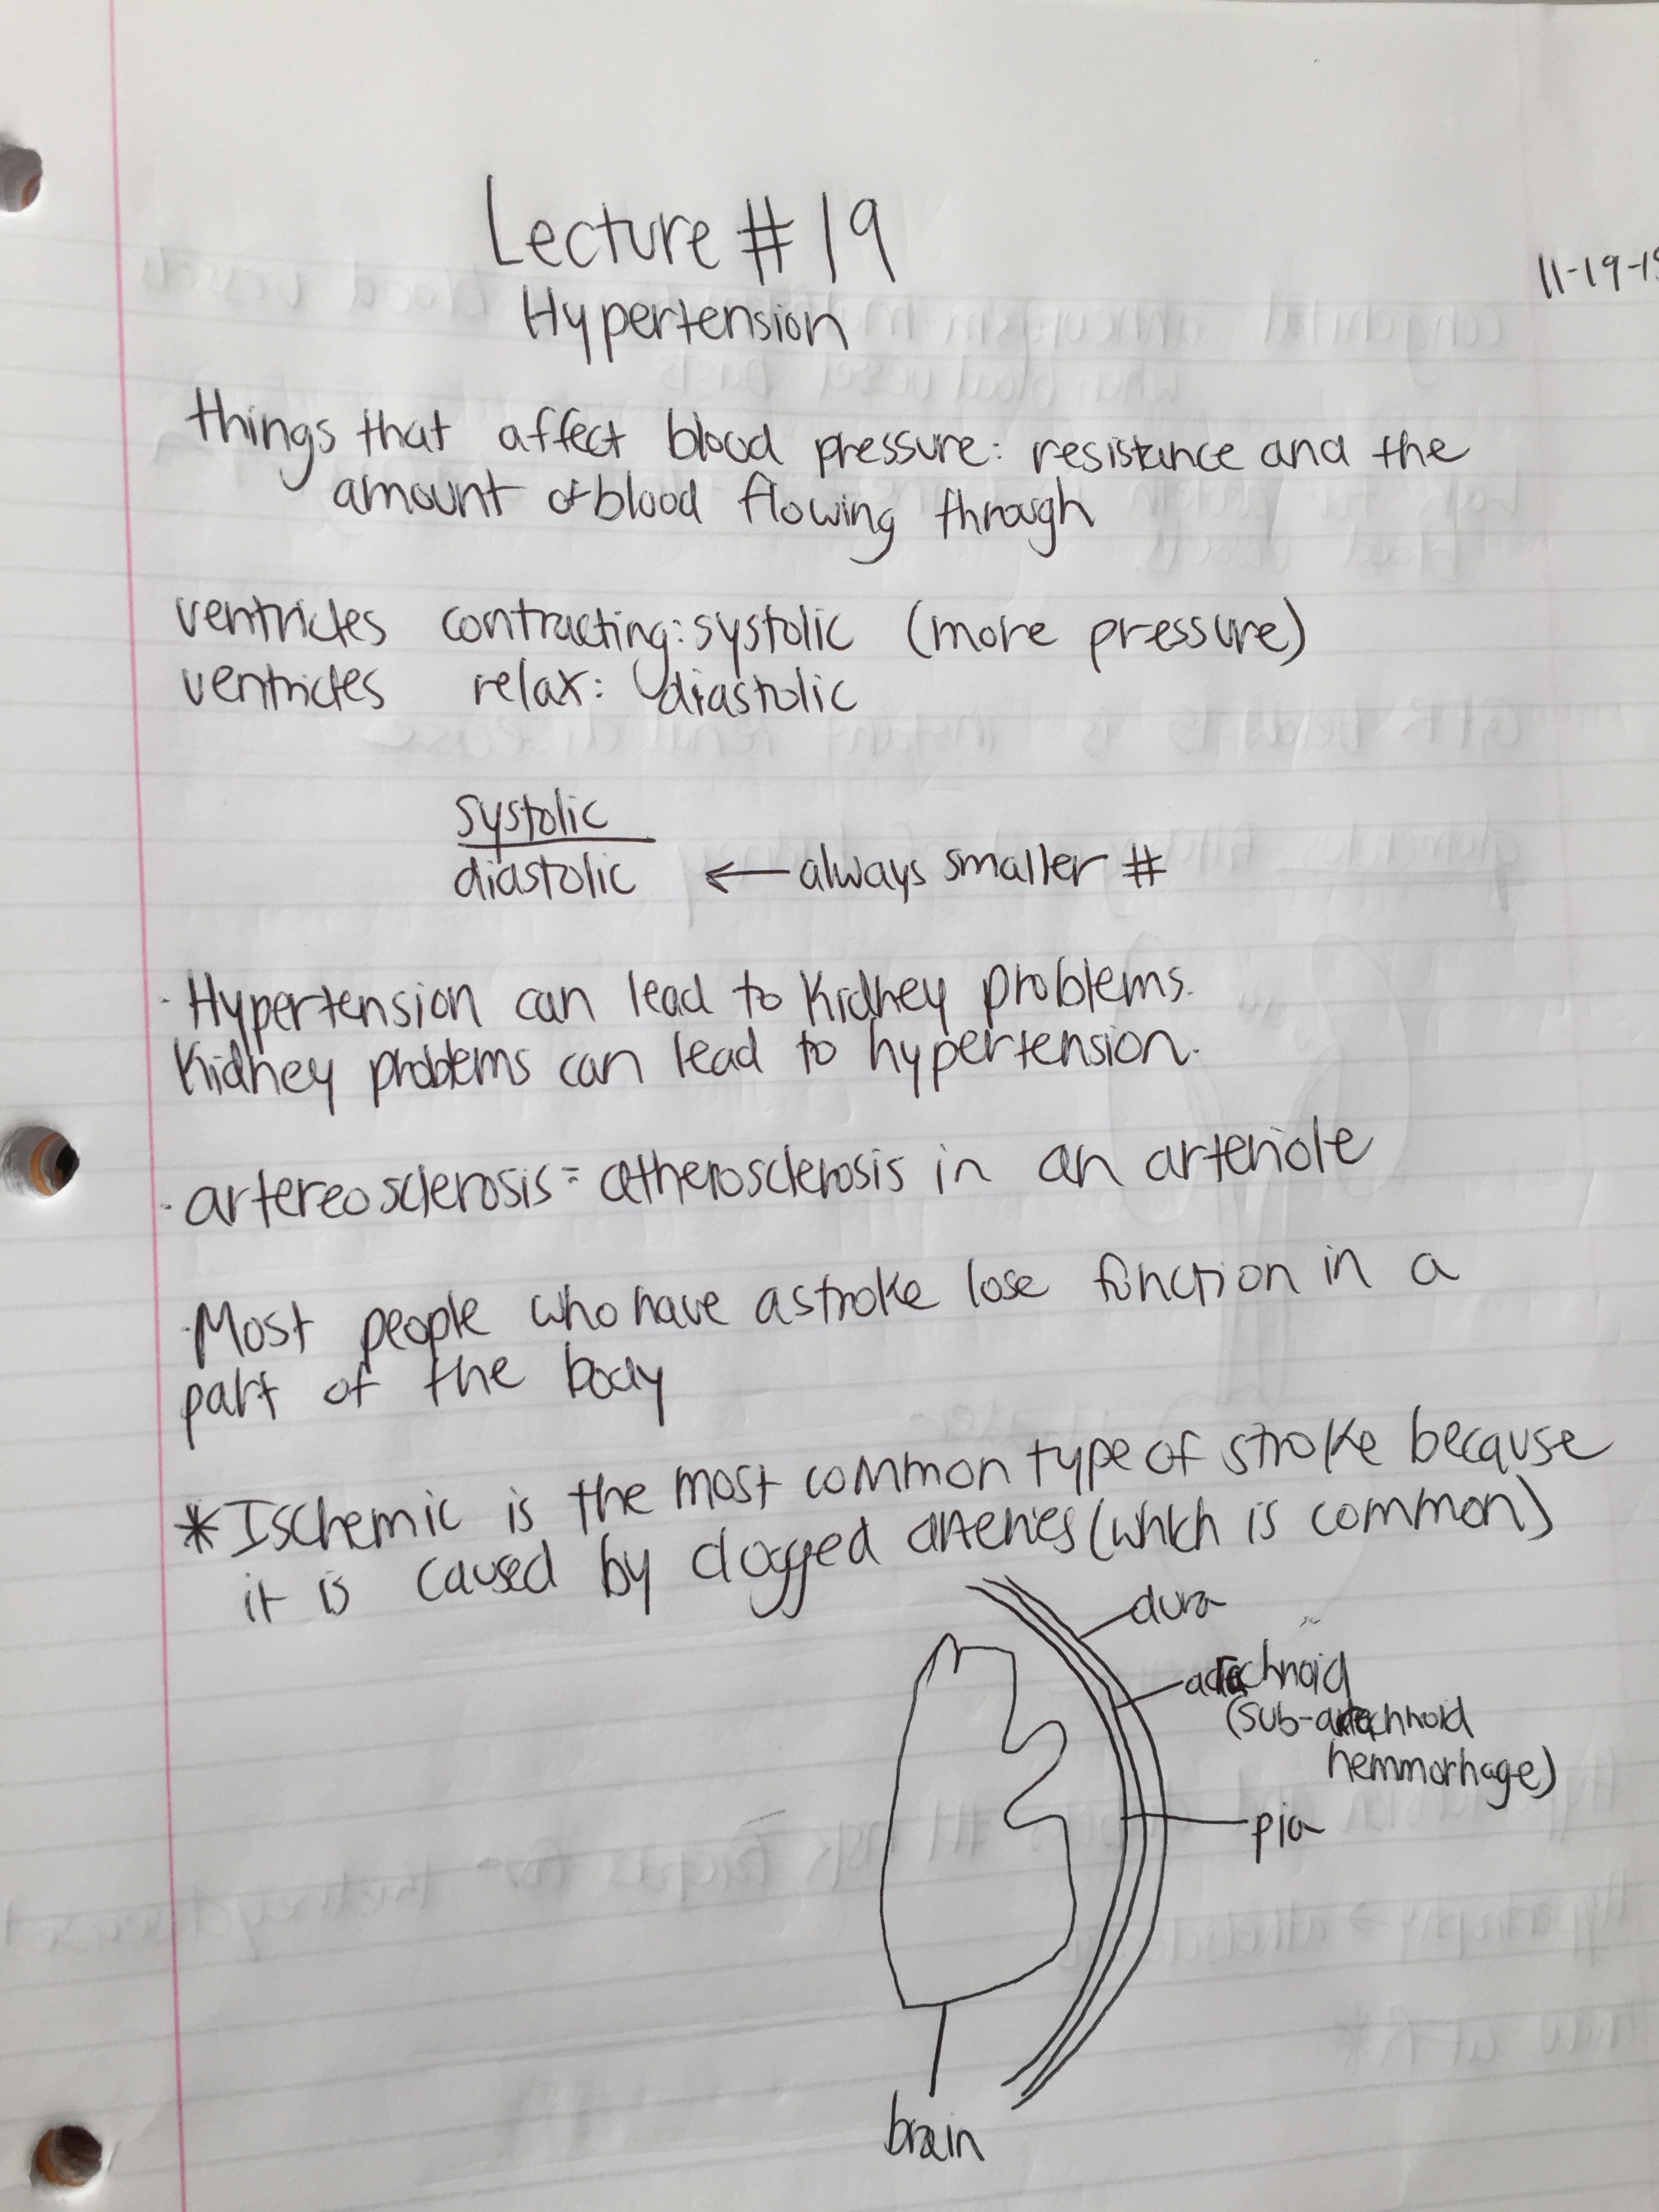 Lecture # 19
11-19-1
Hypertension
things that affect blood pressure: resistance and the
amount of blood flowing through
ventricles contracting: systolic (more pressure)
ventricles relax: diastolic
systolic
diastolic ← always smaller #
· Hypertension can lead to kidney problems.
Kidney problems can lead to hypertension.
· artereosclerosis = atherosclerosis in an arteriole
· Most people who have a stroke lose function in a
part of the body
* Ischemic is the most common type of stroke because
it is caused by clogged arteries (which is common)
dura
arachnoid
(sub-arachnoid
hemmorhage)
pia
brain